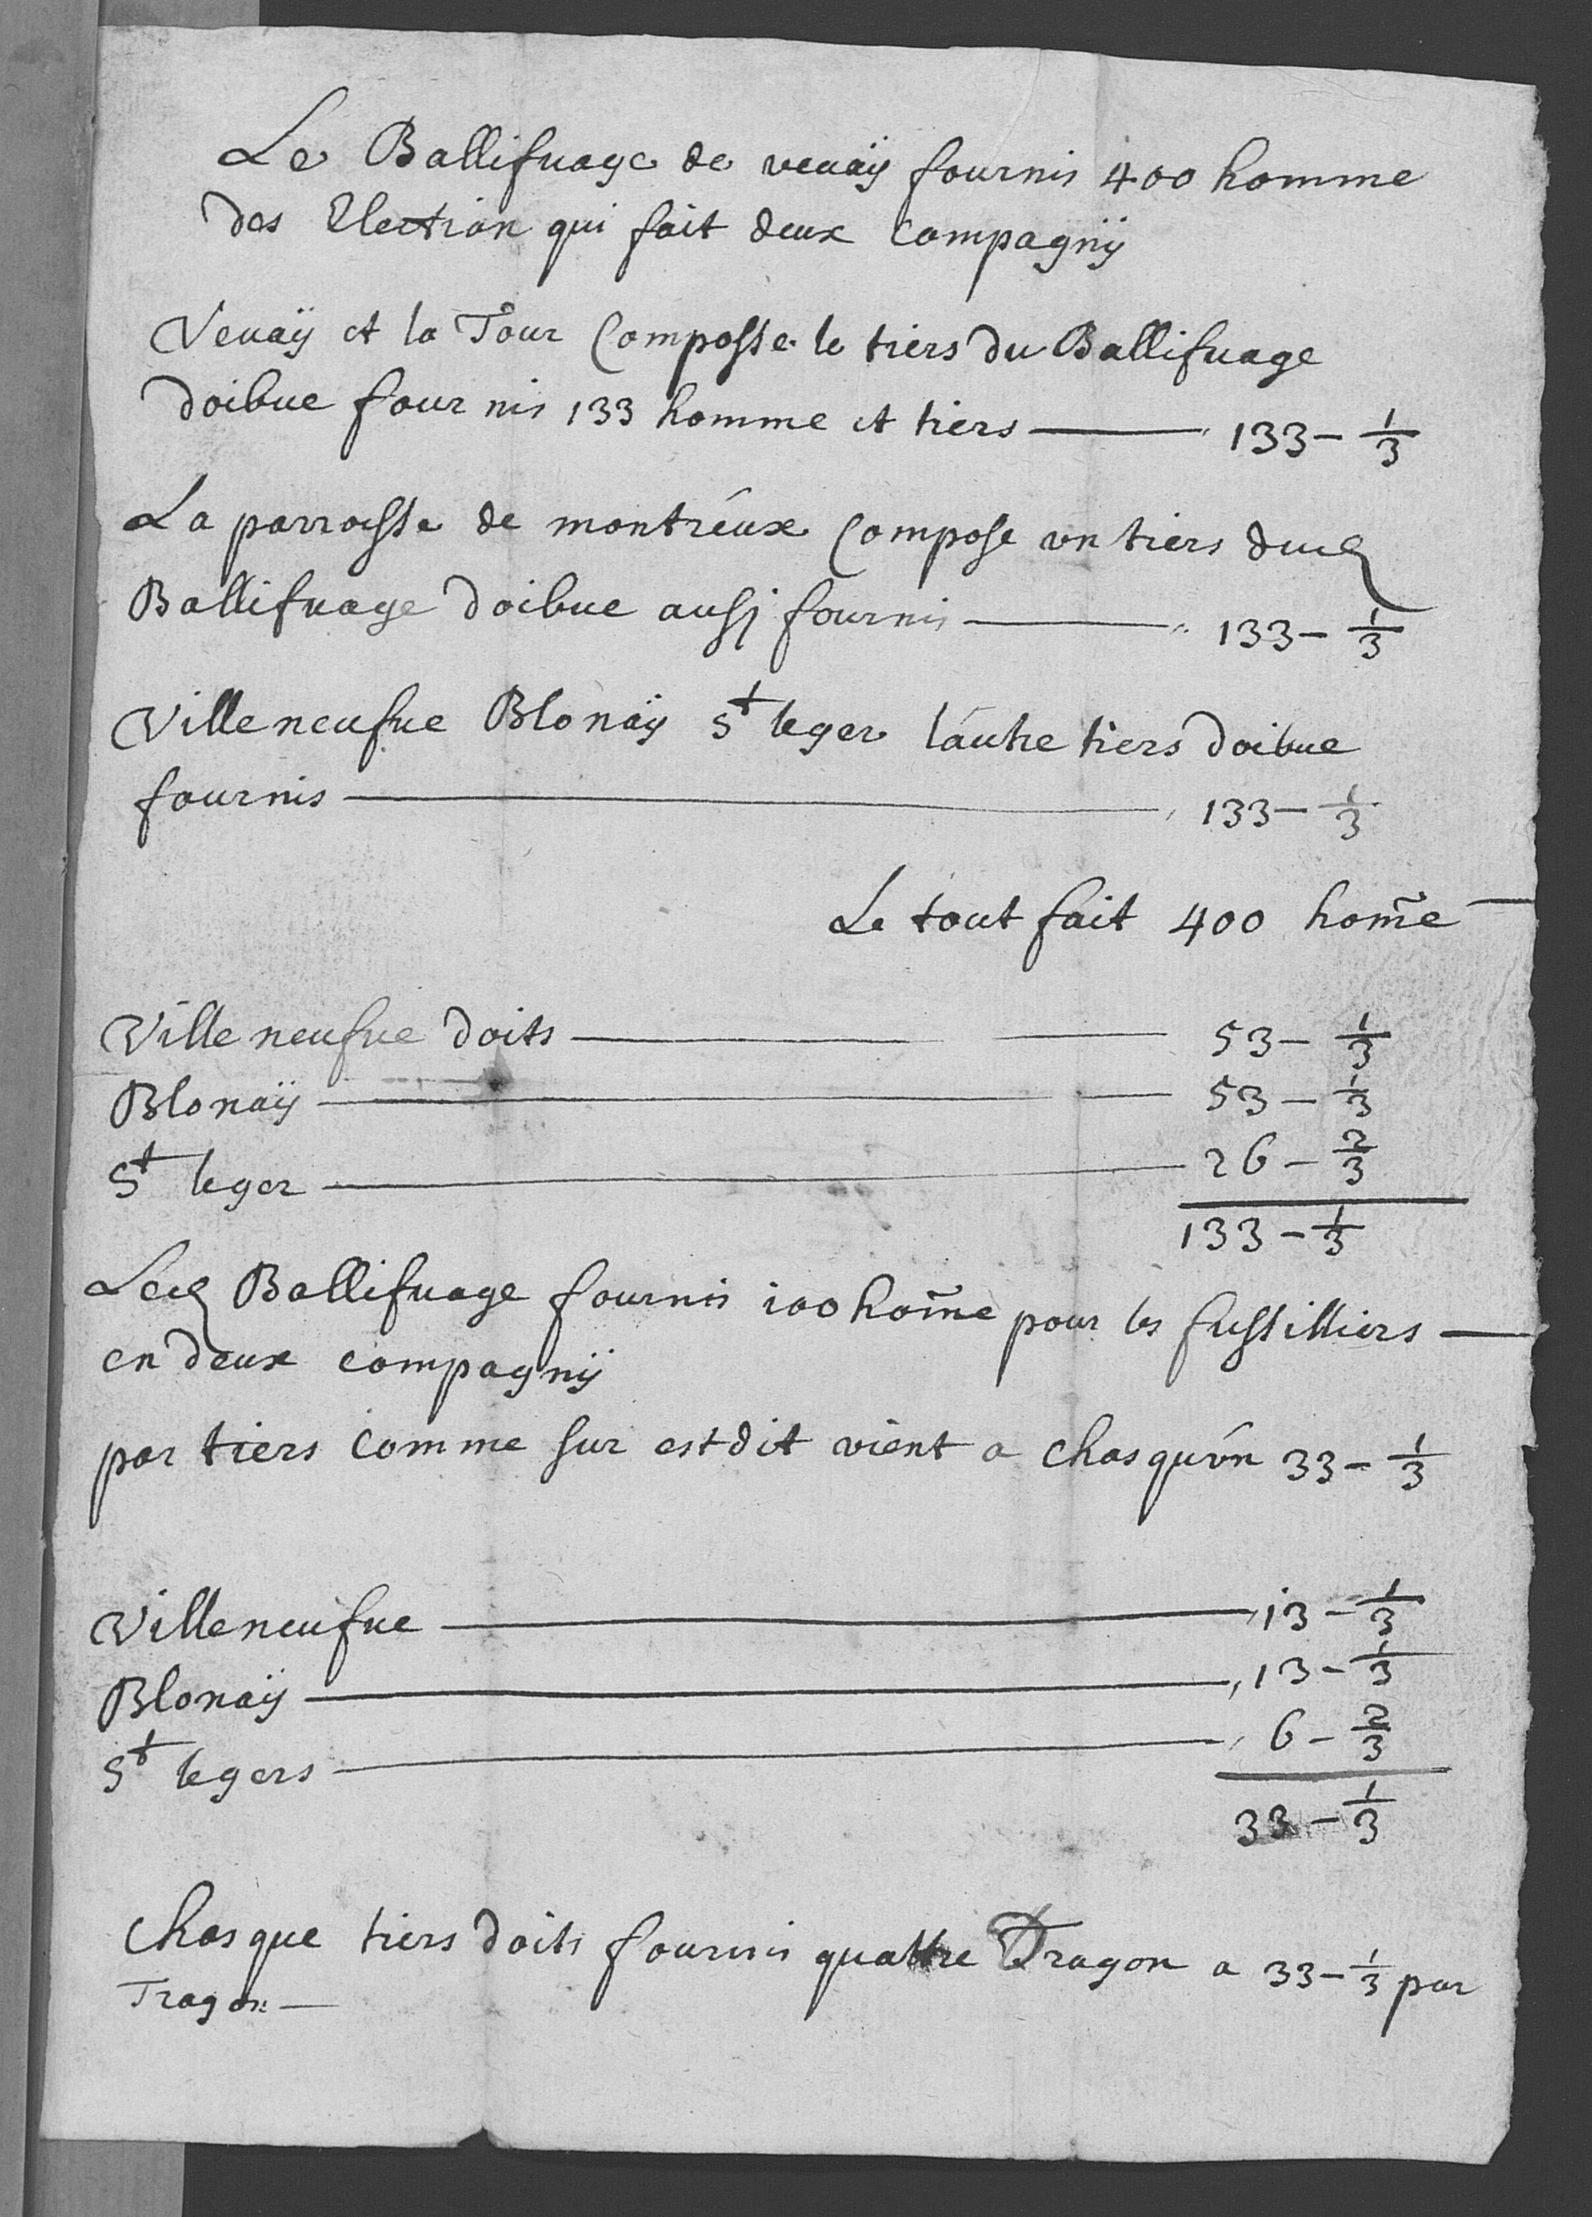 Le Ballifuage de veuaÿ fournis 400 homme
des Election qui fait deux Compagnÿ
Veuaÿ et la Tour Composse le tiers du Ballifuage
doibue fournis 133 homme et tiers — 133 - 1/3
La parroisse de montréux Compose vn tiers dud
Ballifuage doibue aussj fournis — 133 - 1/3
Villeneufue Blonaÿ St leger láutre tiers doibue
fournis — 133 - 1/3
Le tout fait 400 hom̃e —
Villeneufue doits — 53 - 1/3
Blonaÿ — 53 - 1/3
St leger — 26 - 2/3
133 - 1/3
Led Ballifuage fournis 100 hom̃e pour les fussilliers —
en deux compagnÿ
par tiers comme sur est dit vient a chasqu'vn 33 - 1/3
Villeneufue — 13 - 1/3
Blonaÿ — 13 - 1/3
St legers — 6 - 2/3
33 - 1/3
Chasque tiers doits fournis quattre Dragon a 33 - 1/3 par
Tragon —